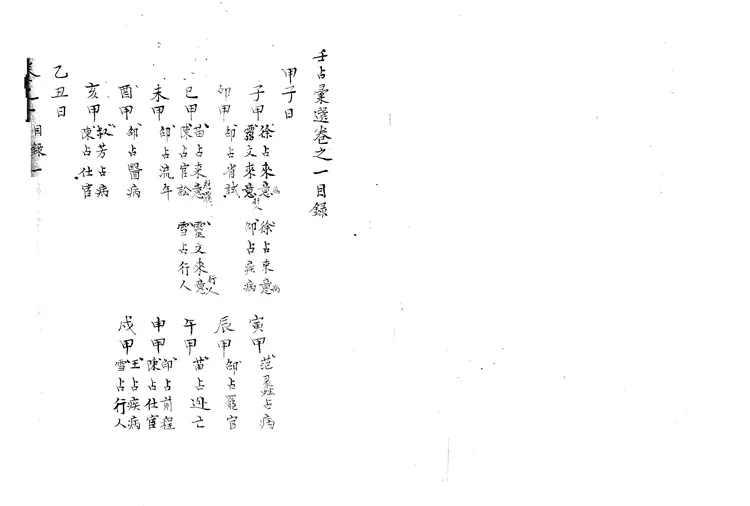 壬占彙選卷之一目錄
甲子日
子甲 徐占來意病 徐占來意病
露文來意 邵占疾病
寅甲 范蠡占病
卯甲 邵占省試
辰甲 邵占罷官
巳甲 苗占來意 靈文來意行人
陳占官訟 雪占行人
午甲 苗占逃亡
未甲 邵占流年
申甲 邵占前程
陳占仕宦
酉甲 邵占醫病
戌甲 王占疾病
雪占行人
亥甲 叔芳占病
陳占仕宦
乙丑日
目錄 一